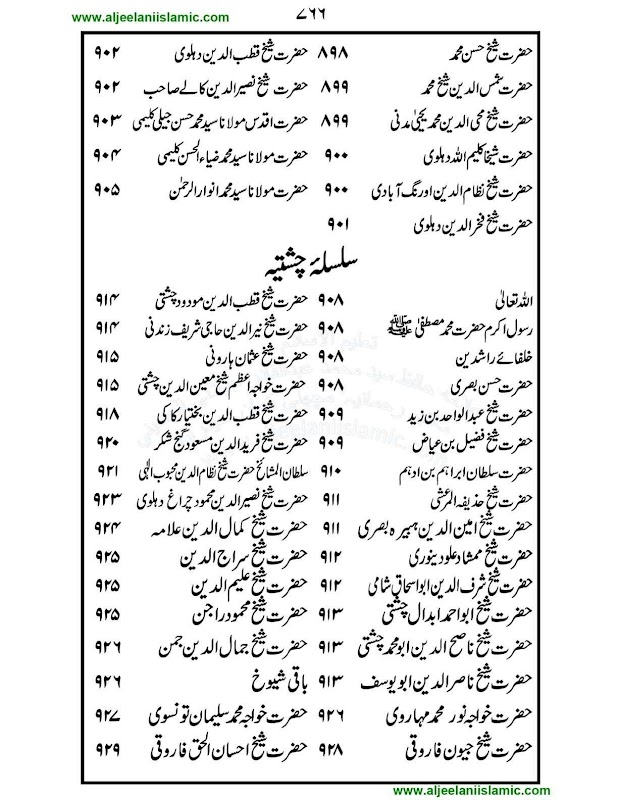 www.aljeelaniislamic.com ۷۶۶
حضرت شیخ حسن محمد ۸۹۸ حضرت شیخ قطب الدین دہلوی ۹۰۲
حضرت شمس الدین شیخ محمد ۸۹۹ حضرت شیخ نصیر الدین کالے صاحب ۹۰۲
حضرت شیخ محی الدین محمد یحییٰ مدنی ۸۹۹ حضرت اقدس مولانا سید محمد حسن جیلی کلیمی ۹۰۳
حضرت شیخا کلیم اللہ دہلوی ۹۰۰ حضرت مولانا سید محمد ضیاء الحسن کلیمی ۹۰۴
حضرت شیخ نظام الدین اورنگ آبادی ۹۰۰ حضرت مولانا سید محمد انوار الرحمٰن ۹۰۵
حضرت شیخ فخر الدین دہلوی ۹۰۱
سلسلۂ چشتیہ
اللہ تعالیٰ ۹۰۸ حضرت شیخ قطب الدین مودود چشتی ۹۱۴
رسول اکرم حضرت محمد مصطفیٰ ﷺ ۹۰۸ حضرت شیخ نیر الدین حاجی شریف زندنی ۹۱۴
خلفائے راشدین ۹۰۸ حضرت شیخ عثمان ہارونی ۹۱۵
حضرت حسن بصری ۹۰۸ حضرت خواجہ اعظم شیخ معین الدین چشتی ۹۱۵
حضرت شیخ عبدالواحد بن زید ۹۰۹ حضرت شیخ قطب الدین بختیار کاکی ۹۱۸
حضرت شیخ فضیل بن عیاض ۹۰۹ حضرت شیخ فرید الدین مسعود گنج شکر ۹۲۰
حضرت سلطان ابراہیم بن ادہم ۹۱۰ سلطان المشائخ حضرت شیخ نظام الدین محبوب الٰہی ۹۲۱
حضرت شیخ حذیفہ المرعشی ۹۱۱ حضرت شیخ نصیر الدین محمود چراغ دہلوی ۹۲۳
حضرت شیخ امین الدین ہبیرہ بصری ۹۱۱ حضرت شیخ کمال الدین علامہ ۹۲۴
حضرت شیخ ممشاد علو دینوری ۹۱۲ حضرت شیخ سراج الدین ۹۲۵
حضرت شیخ شرف الدین ابو اسحاق شامی ۹۱۲ حضرت شیخ علیم الدین ۹۲۵
حضرت شیخ ابو احمد ابدال چشتی ۹۱۳ حضرت شیخ محمود راجن ۹۲۵
حضرت شیخ ناصح الدین ابو محمد چشتی ۹۱۳ حضرت شیخ جمال الدین جمن ۹۲۶
حضرت شیخ ناصر الدین ابو یوسف ۹۱۳ باقی شیوخ ۹۲۶
حضرت خواجہ نور محمد مہاروی ۹۲۶ حضرت خواجہ محمد سلیمان تونسوی ۹۲۷
حضرت شیخ جیون فاروقی ۹۲۸ حضرت شیخ احسان الحق فاروقی ۹۲۹
www.aljeelaniislamic.com